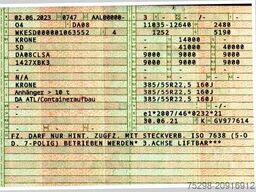 02.06.2023 0747 AAL00000- 3 -
04 DA08 11035-12640 2480
WKESD000001063552 4 1252 5190
KRONE - 14000 -
SD - 41000 40000
DA08CLSA 9000 9000 9000
1427XBK3 9000 9000 9000
-
N/A
KRONE 385/55R22,5 160J
Anhänger > 10 t 385/55R22,5 160J
DA ATL/Containeraufbau 385/55R22,5 160J
- -
- e1*2007/46*0232*21
30.06.21 K GV977614
FZ. DARF NUR HINT. ZUGFZ. MIT STECKVERB. ISO 7638 (5-O
D. 7-POLIG) BETRIEBEN WERDEN* 3.ACHSE LIFTBAR***
75298-20916912